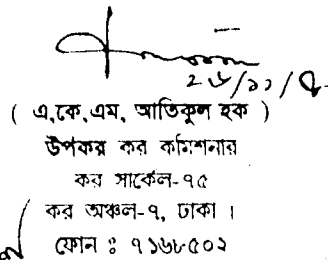 ২৬/১১/
( এ,কে,এম, আতিকুল হক )
উপকর কর কমিশনার
কর সার্কেল-৭৫
কর অঞ্চল-৭, ঢাকা ।
ফোন ঃ ৭১৬৮৫০২